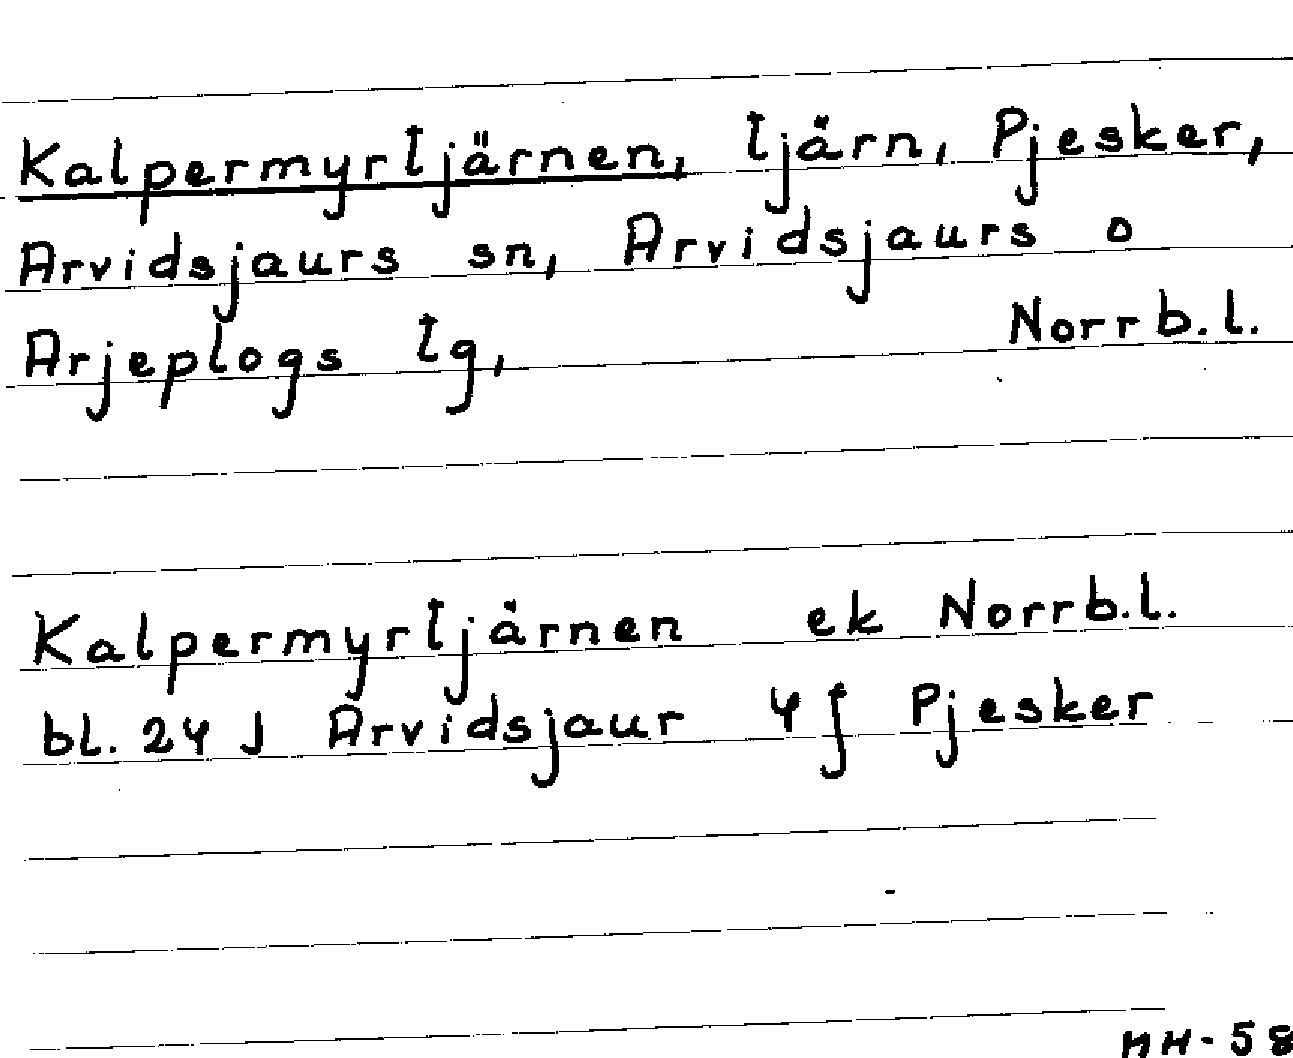 Kalpermyrtjärnen, tjärn, Pjesker,
Arvidsjaurs sn, Arvidsjaurs o
Arjeplogs lg, Norrb.l.
Kalpermyrtjärnen ek Norrb.l.
bl. 24 J Arvidsjaur 4 f Pjesker
MH-58